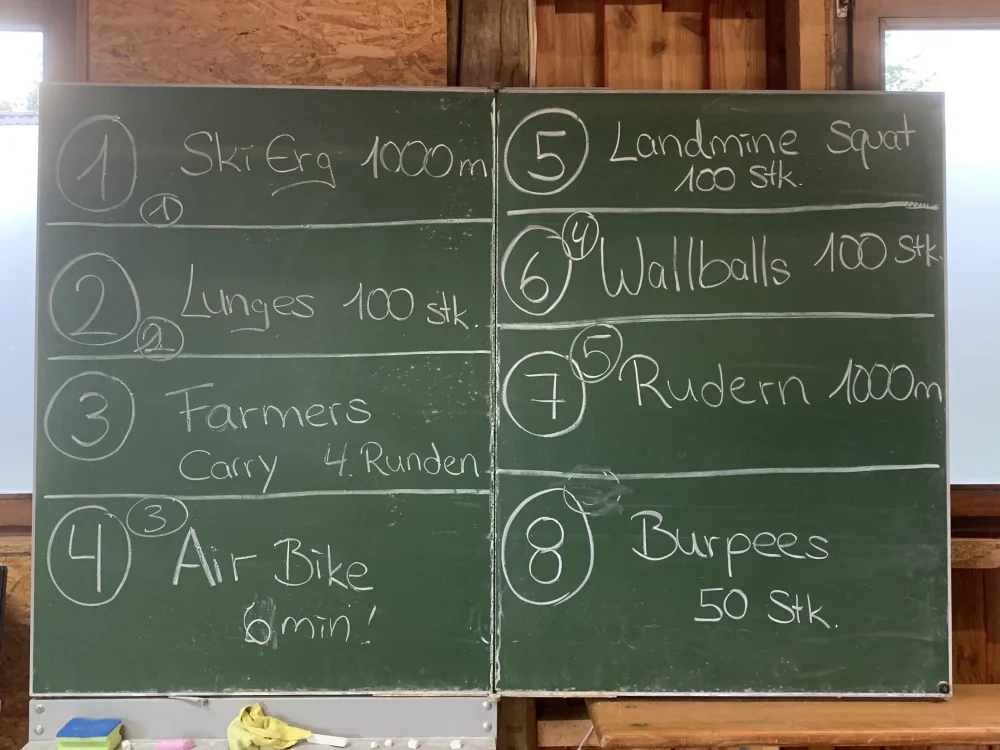 1 Ski Erg 1000m
1
2 Lunges 100 stk.
2
3 Farmers
Carry 4. Runden
4 3 Air Bike
6 min!
5 Landmine Squat
100 Stk.
6 4 Wallballs 100 Stk.
7 5 Rudern 1000m
8 Burpees
50 Stk.